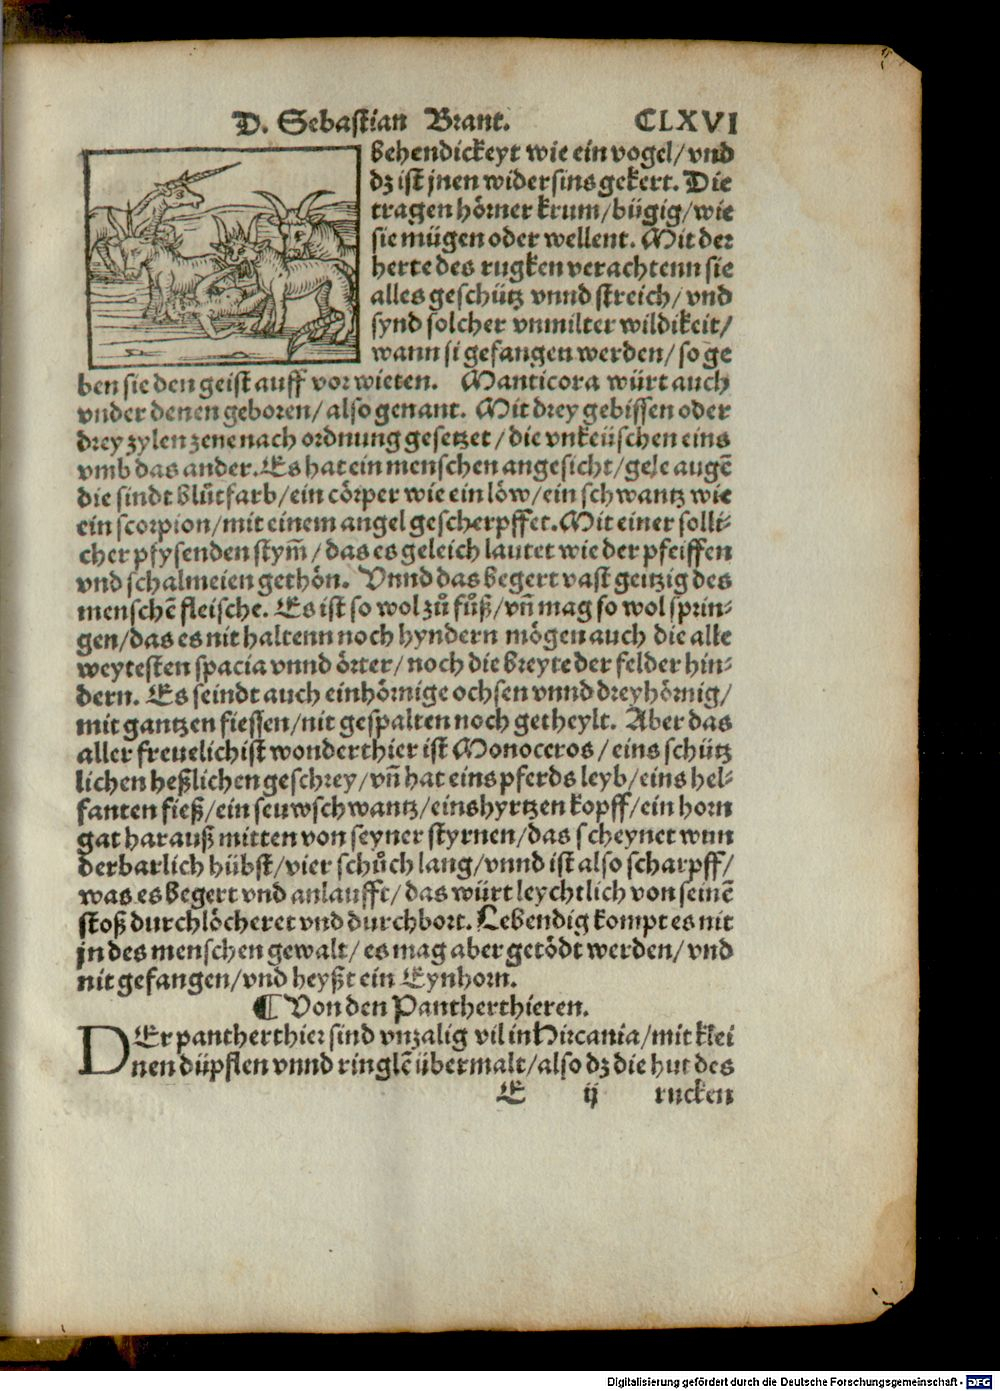 D. Sebastian Brant. CLXVI
behendickeyt wie ein vogel/vnd
dz ist jnen widersins gekert. Die
tragen hörner krum/bügig/wie
sie mügen oder wellent. Mit der
herte des rugken verachtenn sie
alles geschütz vnnd streich/vnd
synd solcher vnmilter wildikeit/
wann si gefangen werden/so ge
ben sie den geist auff vor wieten. Manticora würt auch
vnder denen geboren/also genant. Mit drey gebissen oder
drey zylen zene nach ordnung gesetzet/die vnkeüschen eins
vmb das ander. Es hat ein menschen angesicht/gele augē
die sindt blůtfarb/ein cörper wie ein löw/ein schwantz wie
ein scorpion/mit einem angel gescherpffet. Mit einer solli-
cher pfysenden stym̄/das es geleich lautet wie der pfeiffen
vnd schalmeien gethön. Vnnd das begert vast geitzig des
menschē fleische. Es ist so wol zů fůß/vn̄ mag so wol sprin-
gen/das es nit haltenn noch hyndern mögen auch die alle
weytesten spacia vnnd örter/noch die breyte der felder hin-
dern. Es seindt auch einhörnige ochsen vnnd dreyhörnig/
mit gantzen fiessen/nit gespalten noch getheylt. Aber das
aller freuelichist wonderthier ist Monoceros/eins schütz
lichen heßlichen geschrey/vn̄ hat eins pferds leyb/eins hel-
fanten fieß/ein seuwschwantz/eins hyrtzen kopff/ein horn
gat harauß mitten von seyner styrnen/das scheynet wun
derbarlich hübst/vier schůch lang/vnnd ist also scharpff/
was es begert vnd anlaufft/das würt leychtlich von seinē
stoß durchlöcheret vnd durchbort. Lebendig kompt es nit
jn des menschen gewalt/es mag aber getödt werden/vnd
nit gefangen/vnd heyßt ein Eynhorn.
¶ Von den Pantherthieren.
DEr pantherthier sind vnzalig vil in Hircania/mit klei
nen düpflen vnnd ringlē übermalt/also dz die hut des
E ij rucken
Digitalisierung gefördert durch die Deutsche Forschungsgemeinschaft - DFG